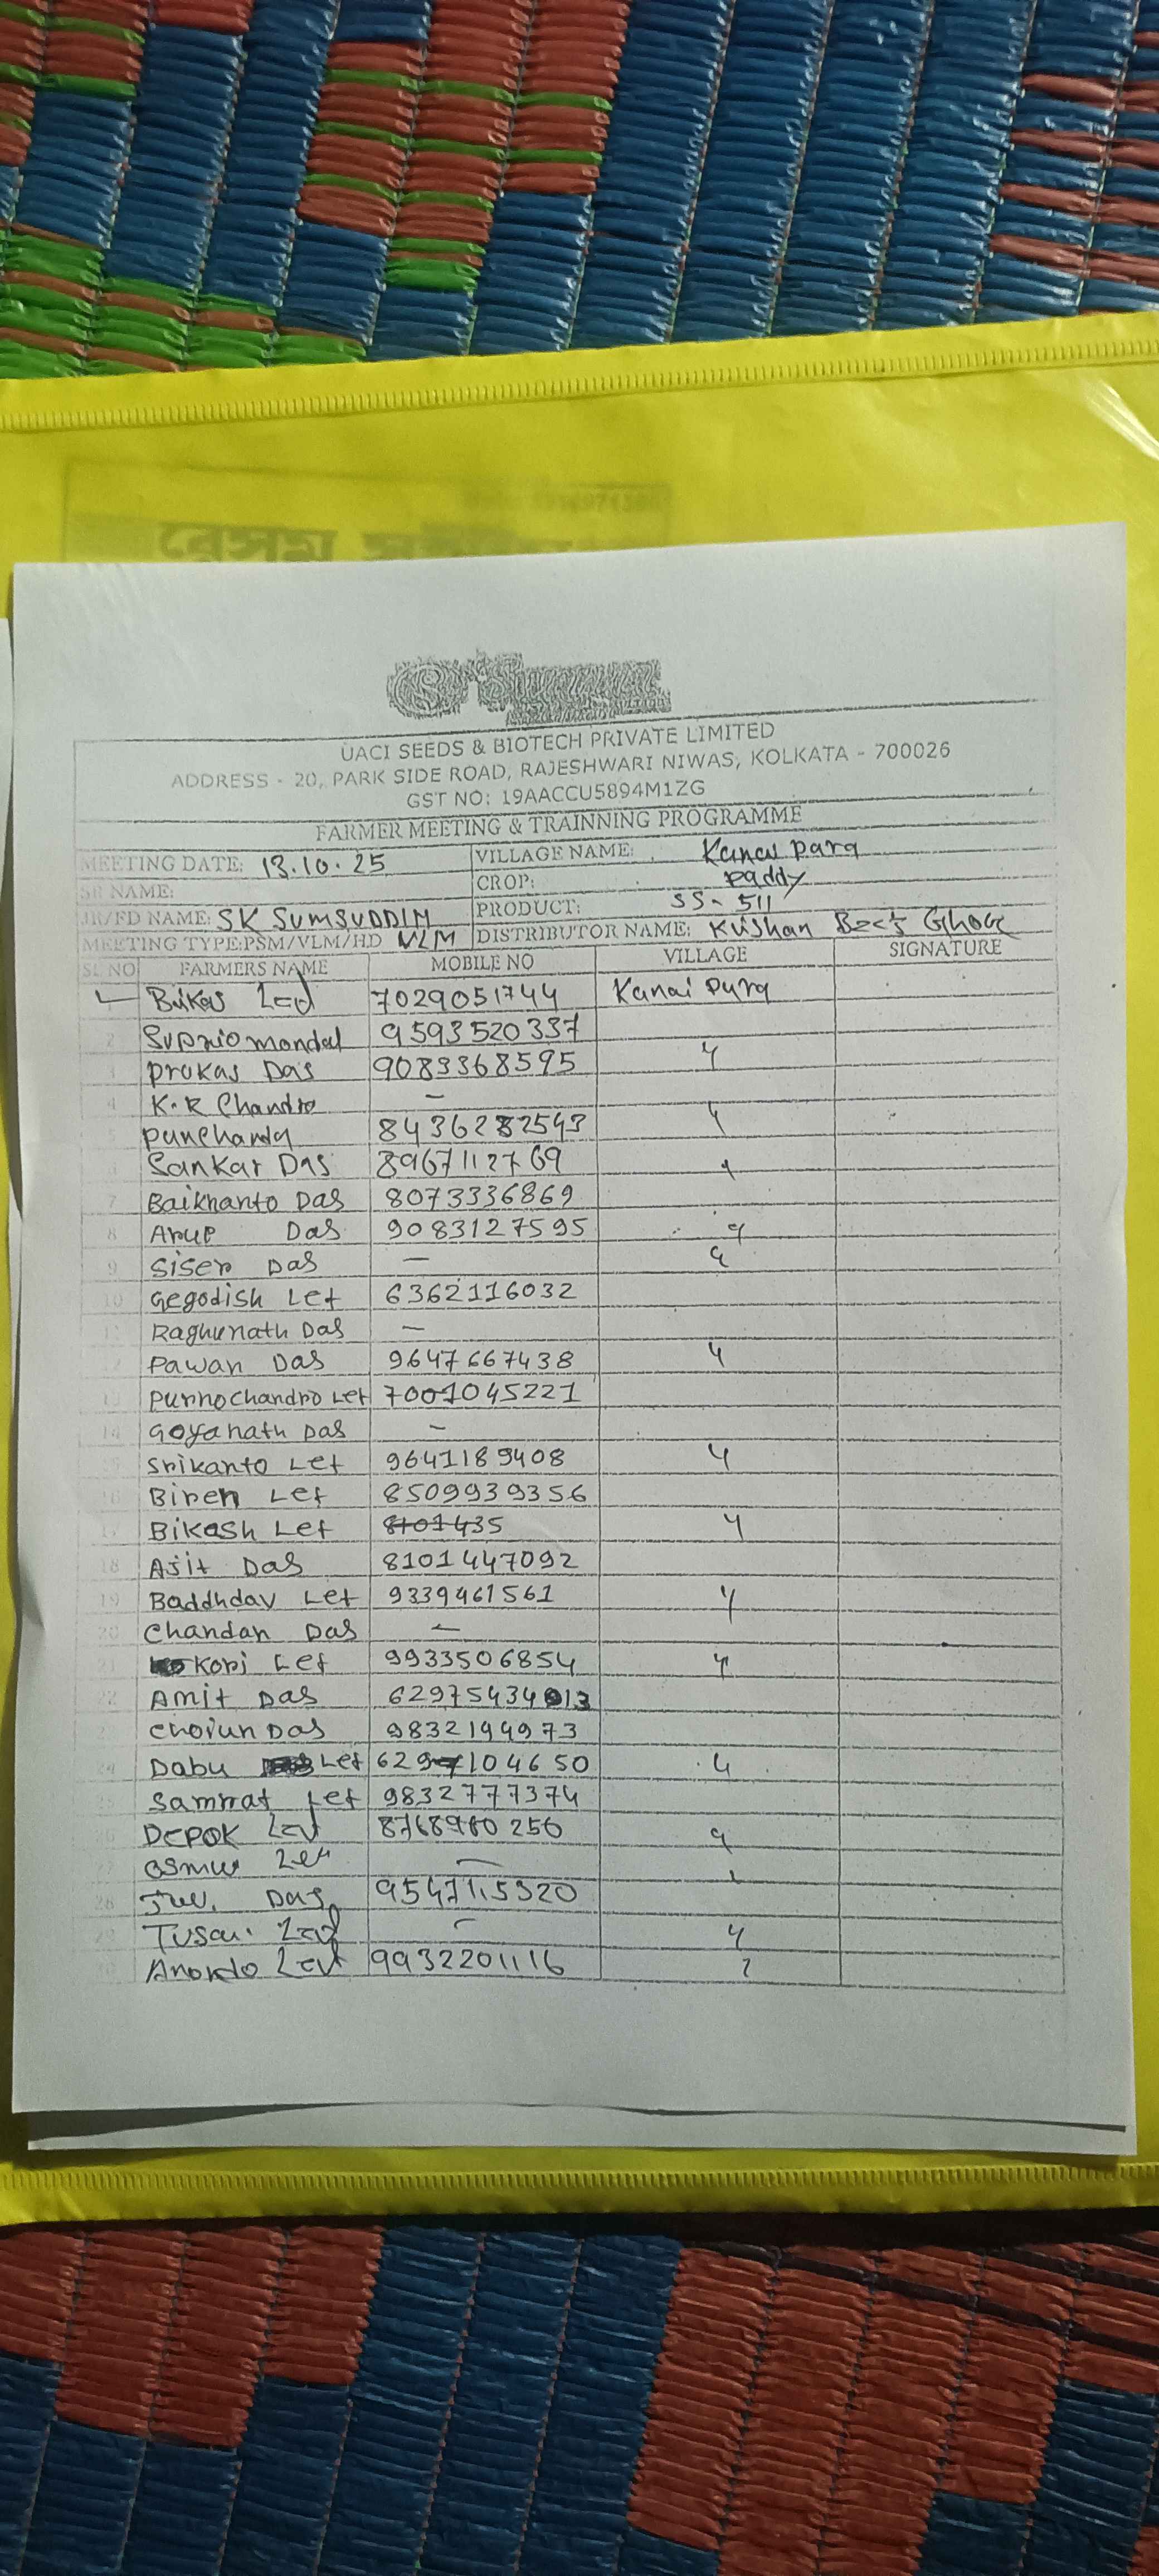 UACI SEEDS & BIOTECH PRIVATE LIMITED
ADDRESS - 20, PARK SIDE ROAD, RAJESHWARI NIWAS, KOLKATA - 700026
GST NO: 19AACCU5894M1ZG
FARMER MEETING & TRAINNING PROGRAMME
MEETING DATE: 13.10.25 VILLAGE NAME: Kanai para
SR NAME: CROP: paddy
JR/FD NAME: SK SUMSUDDIN PRODUCT: SS-511
MEETING TYPE:PSM/VLM/HD VLM DISTRIBUTOR NAME: Krishan Ghose
SL NO FARMERS NAME MOBILE NO VILLAGE SIGNATURE
1 Bikas Led 7029051744 Kanai para
2 Supriomondal 9593520337
3 Prokas Das 9083368595 4
4 K.R Chandro -
5 Panchanda 8436282543 4
6 Sankar Das 8967112769
7 Baikhanto Das 8073336869
8 Arup Das 9083127595 9
9 Siser Das - 9
10 Gegodish Let 6362116032
11 Raghunath Das -
12 Pawan Das 9647667438 4
13 Purnochandro Let 7001045221
14 Goyanath Das -
15 Srikanto Let 9641189408 4
16 Biren Let 8509939356
17 Bikash Let 8101435 4
18 Ajit Das 8101447092
19 Baddhdav Let 9339461561 4
20 Chandan Das -
21 Kobi Let 9933506854 4
22 Amit Das 62975434013
23 Choiun Das 9832194973
24 Dabu Let 6297104650 4
25 Samrat Let 9832777374
26 DEPOK Led 8768960256 9
27 -
28 Das 9547115320
29 Led - 4
30 Anondo Led 9932201116